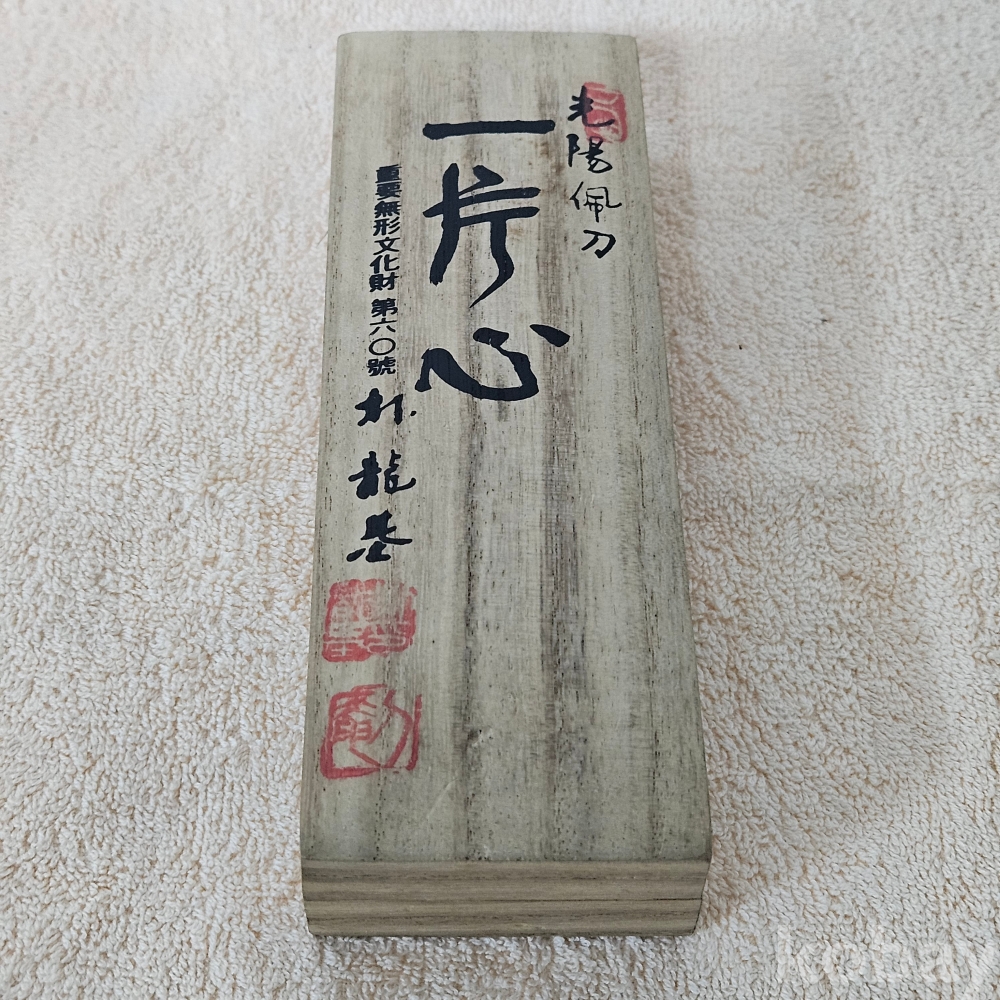 光陽佩刀
一片心
重要無形文化財 第六〇號
朴龍基
kobay